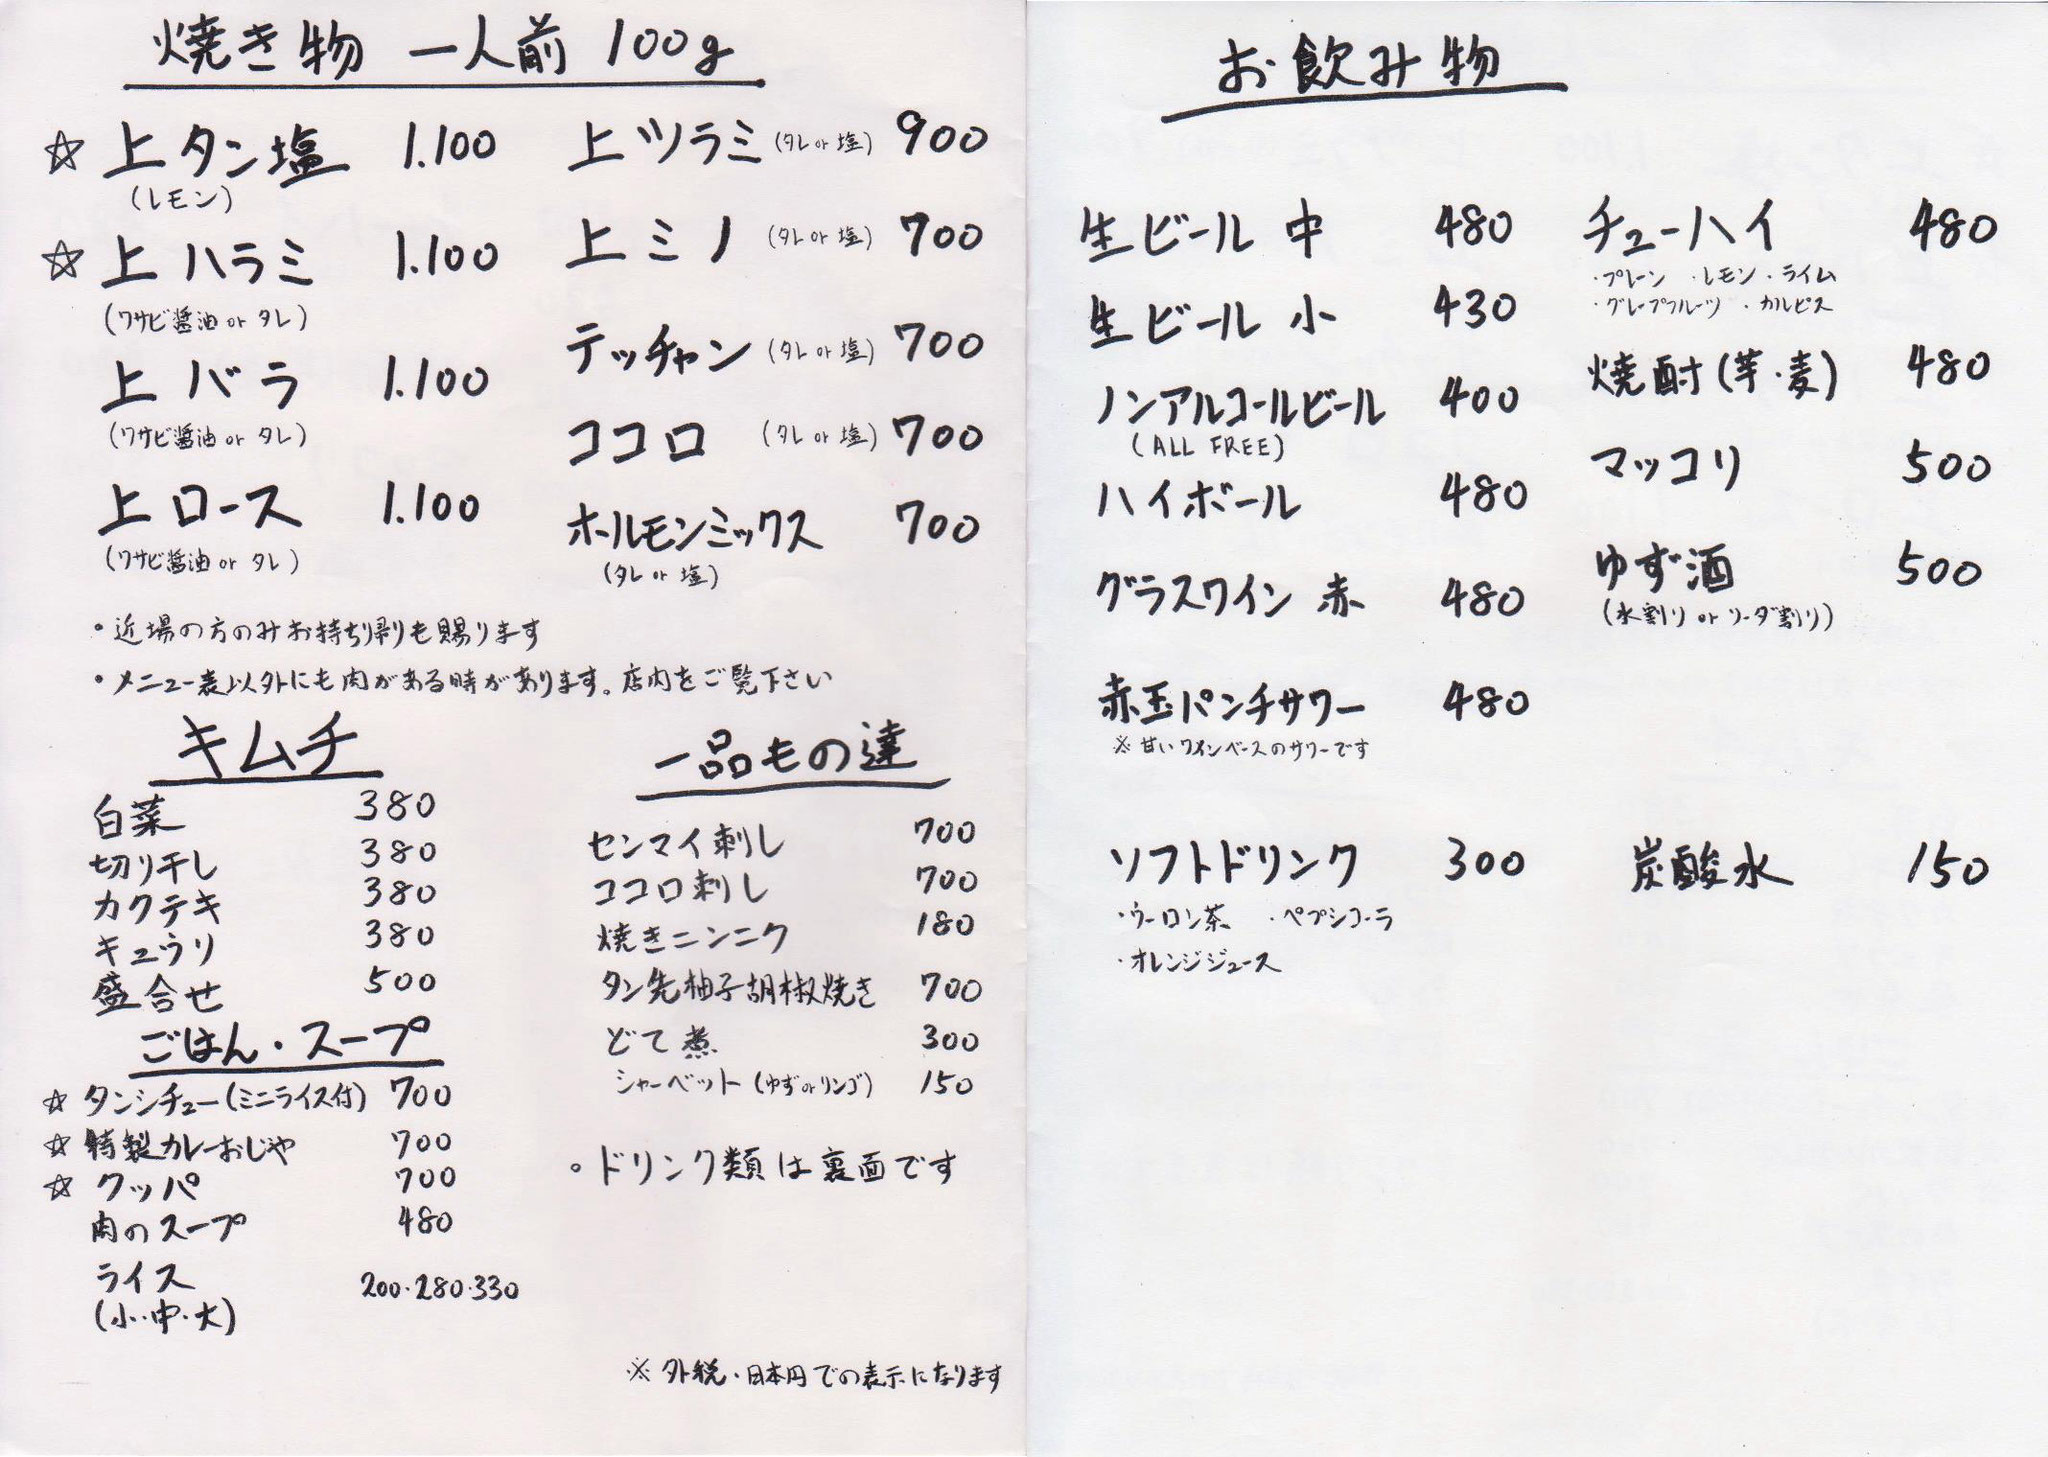 焼き物 一人前 100g
☆ 上タン塩 1.100
(レモン)
☆ 上ハラミ 1.100
(ワサビ醤油 or タレ)
上バラ 1.100
(ワサビ醤油 or タレ)
上ロース 1.100
(ワサビ醤油 or タレ)
上ツラミ (タレ or 塩) 900
上ミノ (タレ or 塩) 700
テッチャン (タレ or 塩) 700
ココロ (タレ or 塩) 700
ホルモンミックス 700
(タレ or 塩)
・近場の方のみお持ち剥りも賜ります
・メニュー表以外にも肉がある時があります。店内をご覧下さい
キムチ
白菜 380
切り干し 380
カクテキ 380
キュウリ 380
盛合せ 500
ごはん・スープ
☆ タンシチュー(ミニライス付) 700
☆ 特製カレーおじや 700
☆ クッパ 700
肉のスープ 480
ライス 200・280・330
(小・中・大)
一品もの達
センマイ刺し 700
ココロ刺し 700
焼きニンニク 180
タン先柚子胡椒焼き 700
どて煮 300
シャーベット (ゆず or リンゴ) 150
。ドリンク類は裏面です
※外税・日本円での表示になります
お飲み物
生ビール 中 480
生ビール 小 430
ノンアルコールビール 400
(ALL FREE)
ハイボール 480
グラスワイン 赤 480
赤玉パンチサワー 480
※甘いワインベースのサワーです
チューハイ 480
・プレーン ・レモン・ライム
・グレープフルーツ ・カルピス
焼酎(芋・麦) 480
マッコリ 500
ゆず酒 500
(水割り or ソーダ割り)
ソフトドリンク 300
・ウーロン茶 ・ペプシコーラ
・オレンジジュース
炭酸水 150